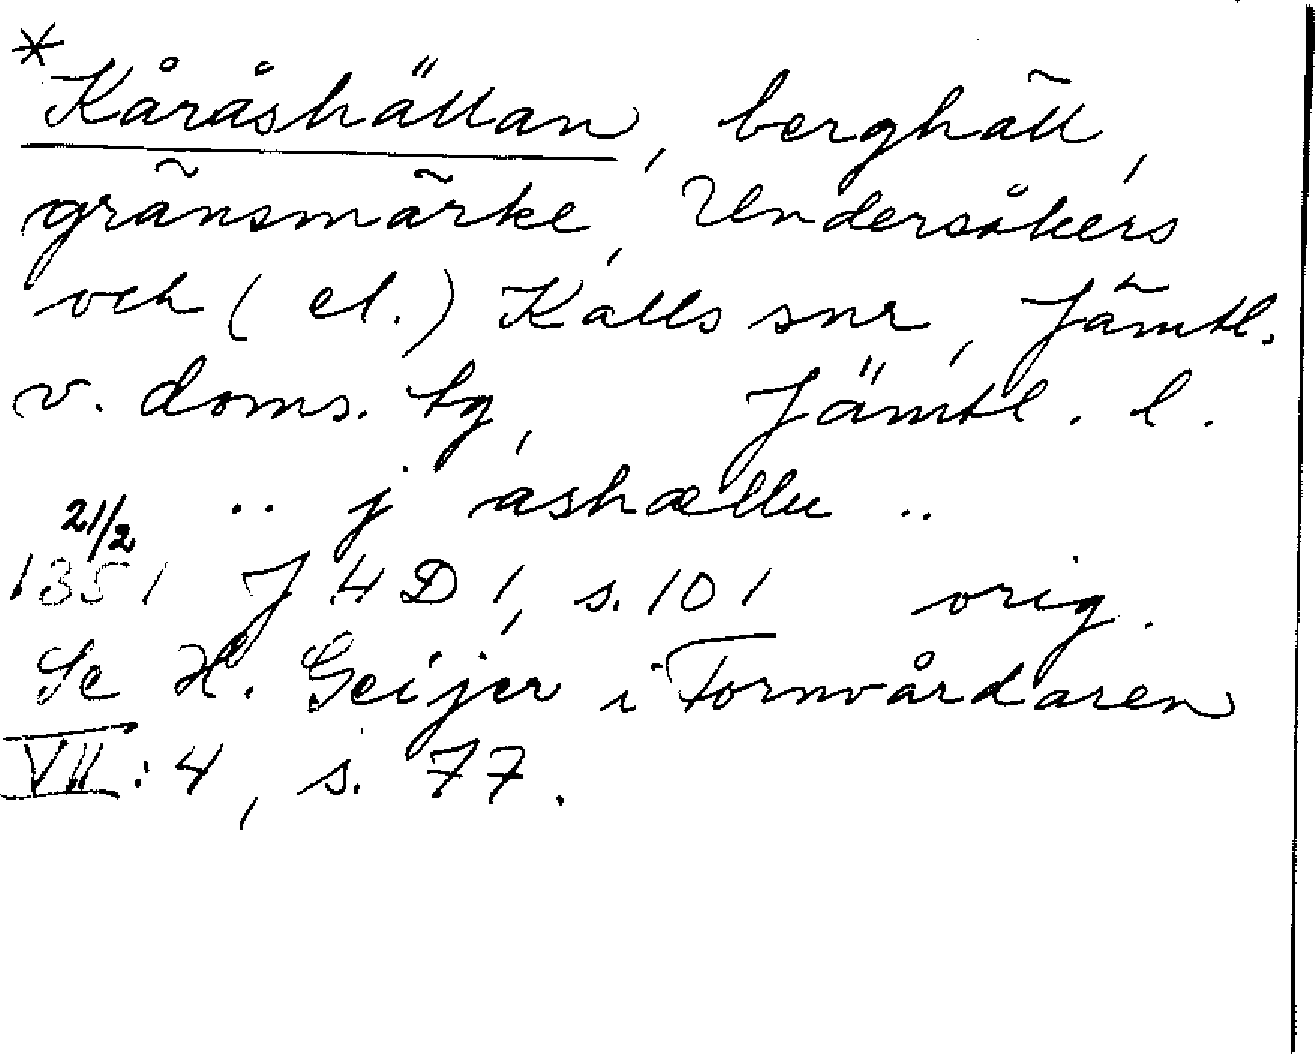 *Kåråshällan, berghäll,
gränsmärke, Undersåkers
och (el.) Kalls snr, Jämtl.
v. doms. tg, Jämtl. l.
.. j ashællu ..
21/2
1351 J 4 D 1, s. 101 orig.
Se H. Geijer i Fornvårdaren
VII: 4, s. 77.